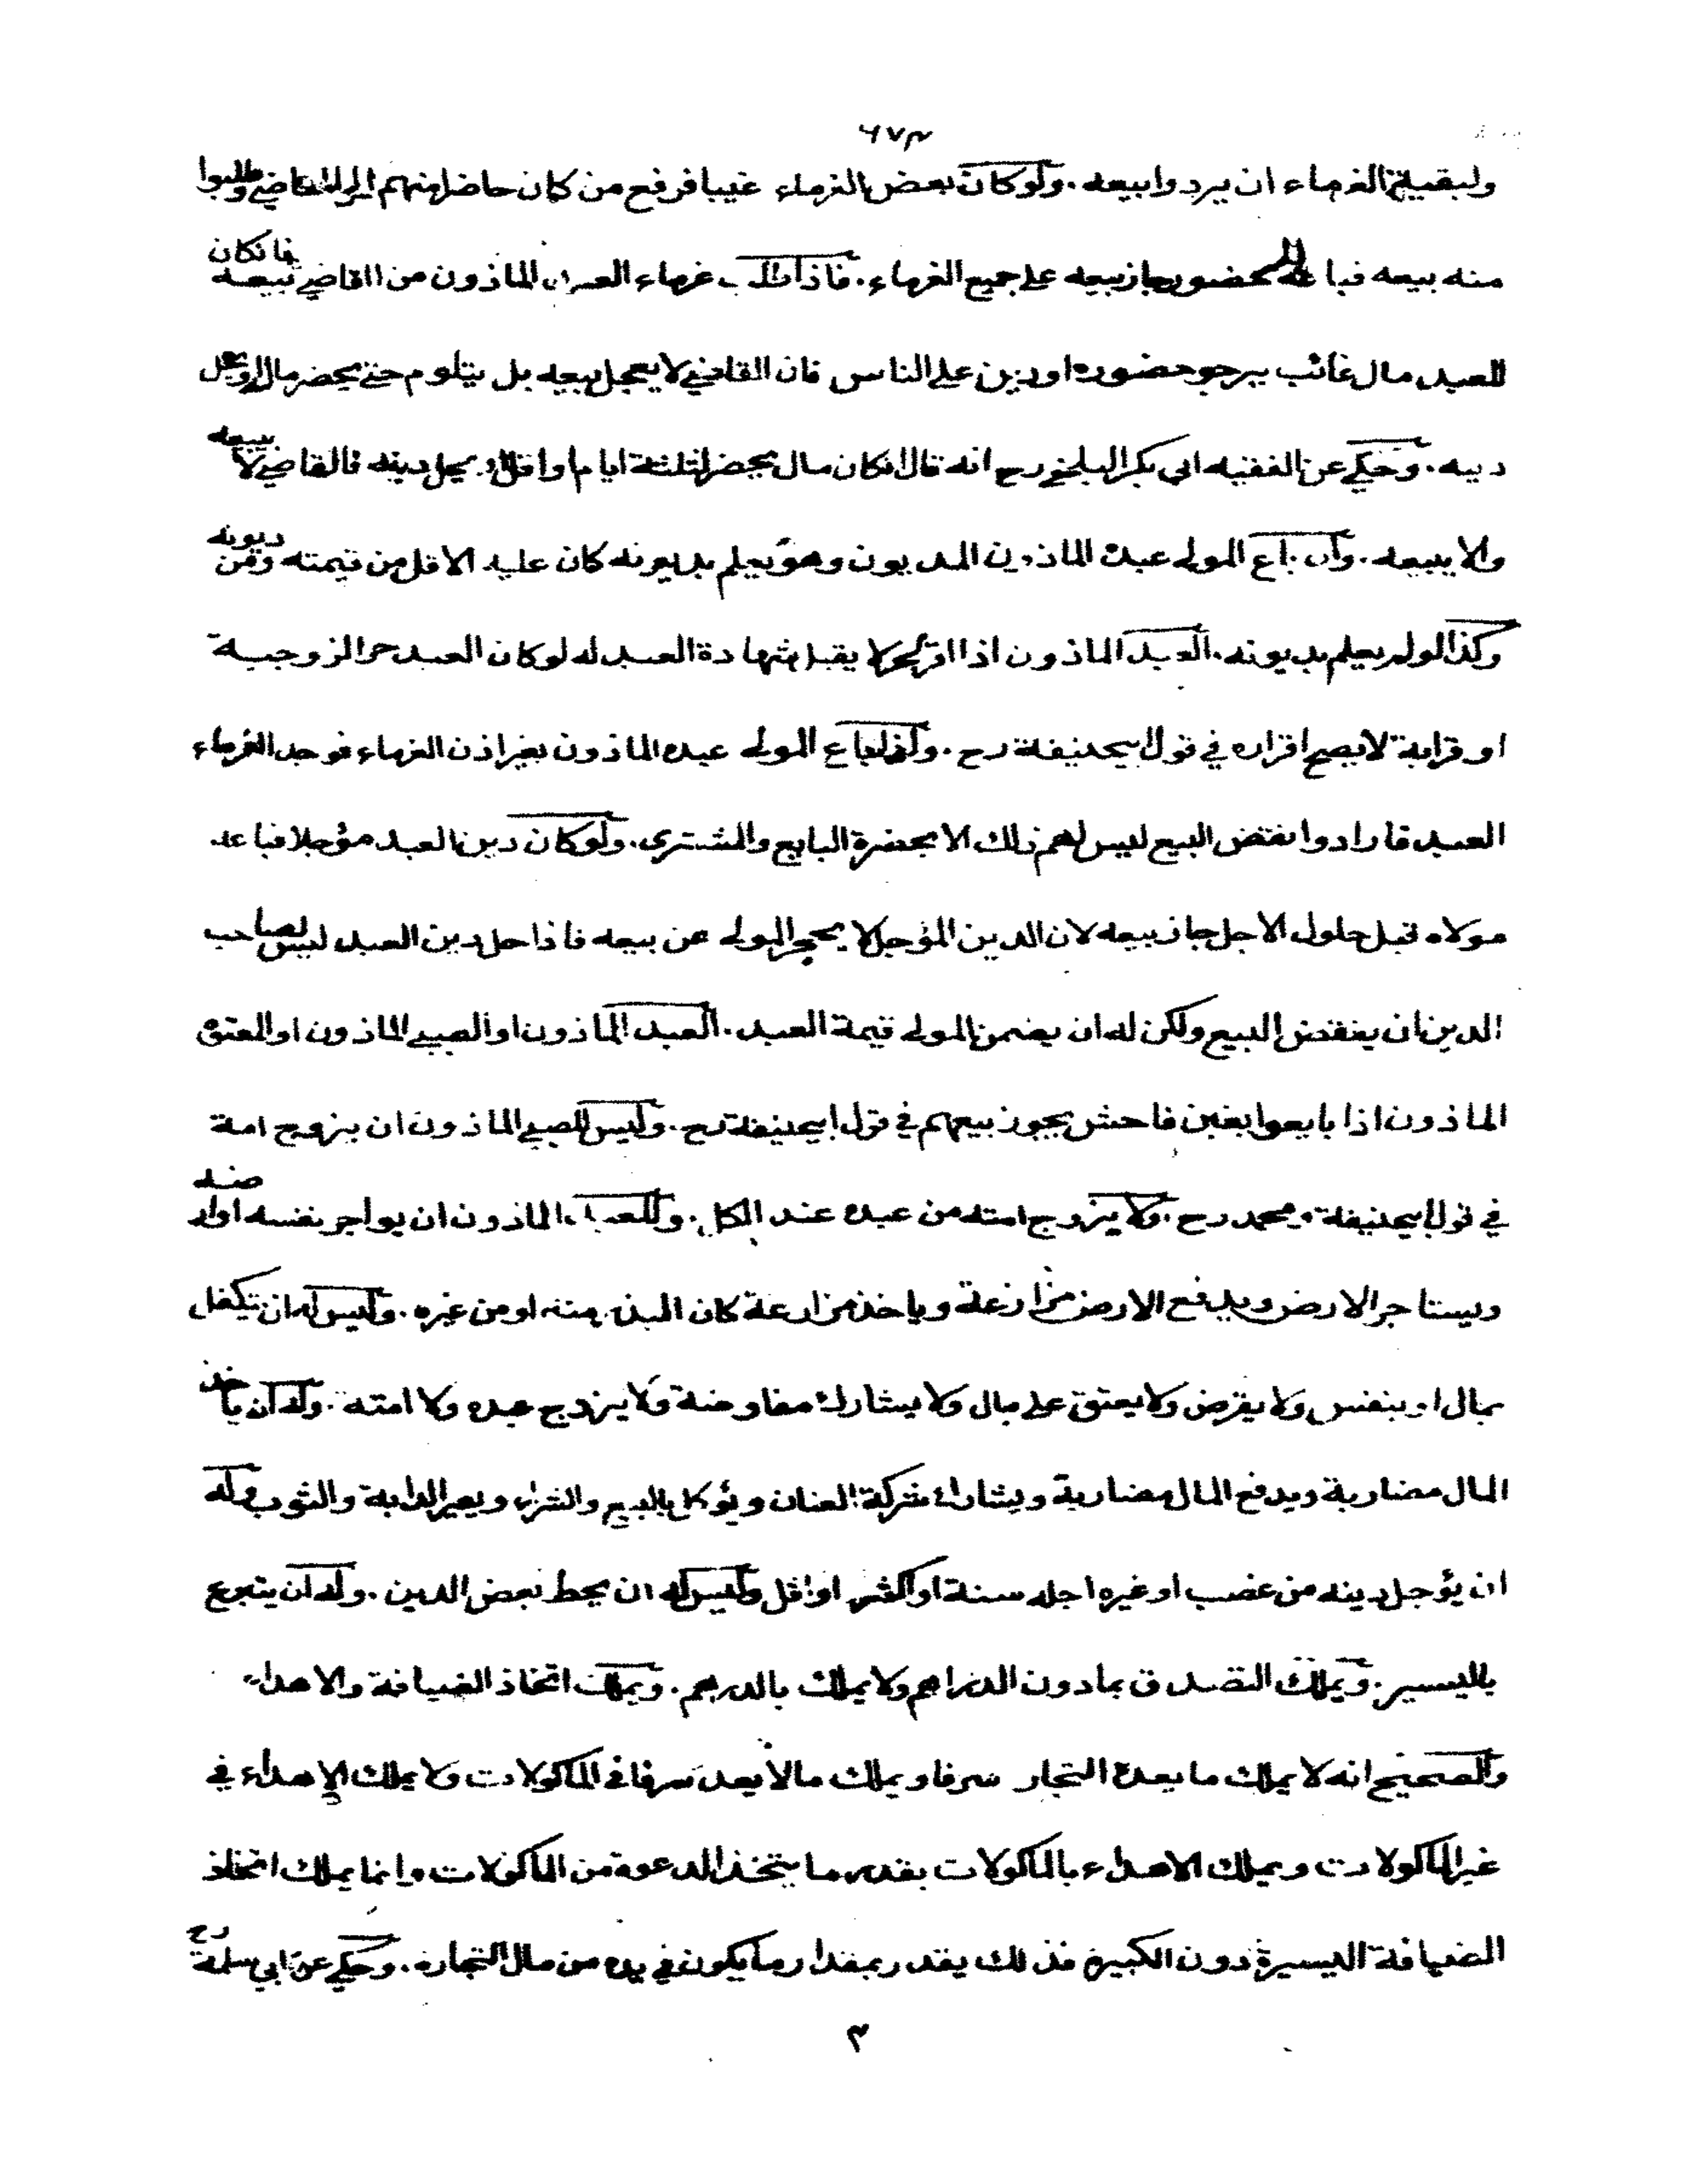 ٦٧٣
ولبقية الغرماء ان يردوا بيعه . ولو كان بعض الغرماء غيبا فرفع من كان حاضرا منهم الى القاضي وطلبوا
منه بيعه فباعه للحضور جاز بيعه على جميع الغرماء . فاذا طلب غرماء العبد الماذون من القاضي بيعه فان كان
للعبد مال غائب يرجو حضوره او دين على الناس فان القاضي لا يعجل بيعه بل يتلوم حتى يحضر ماله او يحل
دينه . وحكي عن الفقيه ابي بكر البلخي رح انه قال ان كان مال يحضر لثلثة ايام او اقل او يحل دينه فالقاضي لا يبيعه
والا يبيعه . وان باع المولى عبده الماذون المديون وهو يعلم بديونه كان عليه الاقل من قيمته ومن ديونه
وكذا لو لم يعلم بديونه . العبد الماذون اذا اقر لحر لا يقبل شهادة العبد له لو كان العبد حرا لزوجية
او قرابة لا يصح اقراره في قول ابيحنيفة رح . واذا باع المولى عبده الماذون بغير اذن الغرماء فوجد الغرماء
العبد فارادوا نقض البيع ليس لهم ذلك الا بحضرة البايع والمشتري . ولو كان دين العبد مؤجلا فباعه
مولاه قبل حلول الاجل جاز بيعه لان الدين المؤجل لا يحجر المولى عن بيعه فاذا حل دين العبد ليس لصاحب
الدين ان ينقض البيع ولكن له ان يضمن المولى قيمة العبد . العبد الماذون او الصبي الماذون او المعتوه
الماذون اذا بايعوا بغبن فاحش يجوز بيعهم في قول ابيحنيفة رح . وليس للصبي الماذون ان يزوج امة
في قول ابيحنيفة ومحمد رح . ولا يزوج امته من عبده عند الكل . وللعبد الماذون ان يواجر نفسه او ارضه
ويستاجر الارض ويدفع الارض مزارعة وياخذ مزارعة كان البذر منه او من غيره . وليس له ان يتكفل
بمال او بنفس ولا يقرض ولا يعتق على مال ولا يشارك مفاوضة ولا يزوج عبده ولا امته . وله ان ياخذ
المال مضاربة ويدفع المال مضاربة ويشارك شركة العنان ويؤكل بالبيع والشراء ويعير الدابة والثوب وله
ان يؤجل دينه من غصب او غيره اجله سنة او اكثر او اقل وليس له ان يحط بعض الدين . وله ان يتبرع
باليسير . ويملك التصدق بما دون الدراهم ولا يملك بالدرهم . ويملك اتخاذ الضيافة والاهداء
والصحيح انه لا يملك ما يعده التجار سرفا ويملك مالا يعد سرفا في الماكولات ولا يملك الاهداء في
غير الماكولات ويملك الاهداء بالماكولات بقدر ما يتخذ الدعوة من الماكولات وانما يملك اتخاذ
الضيافة اليسيرة دون الكبيرة فذلك يقدر بمقدار ما يكون في يده من مال التجارة . وحكي عن ابي سلمة رح
٣